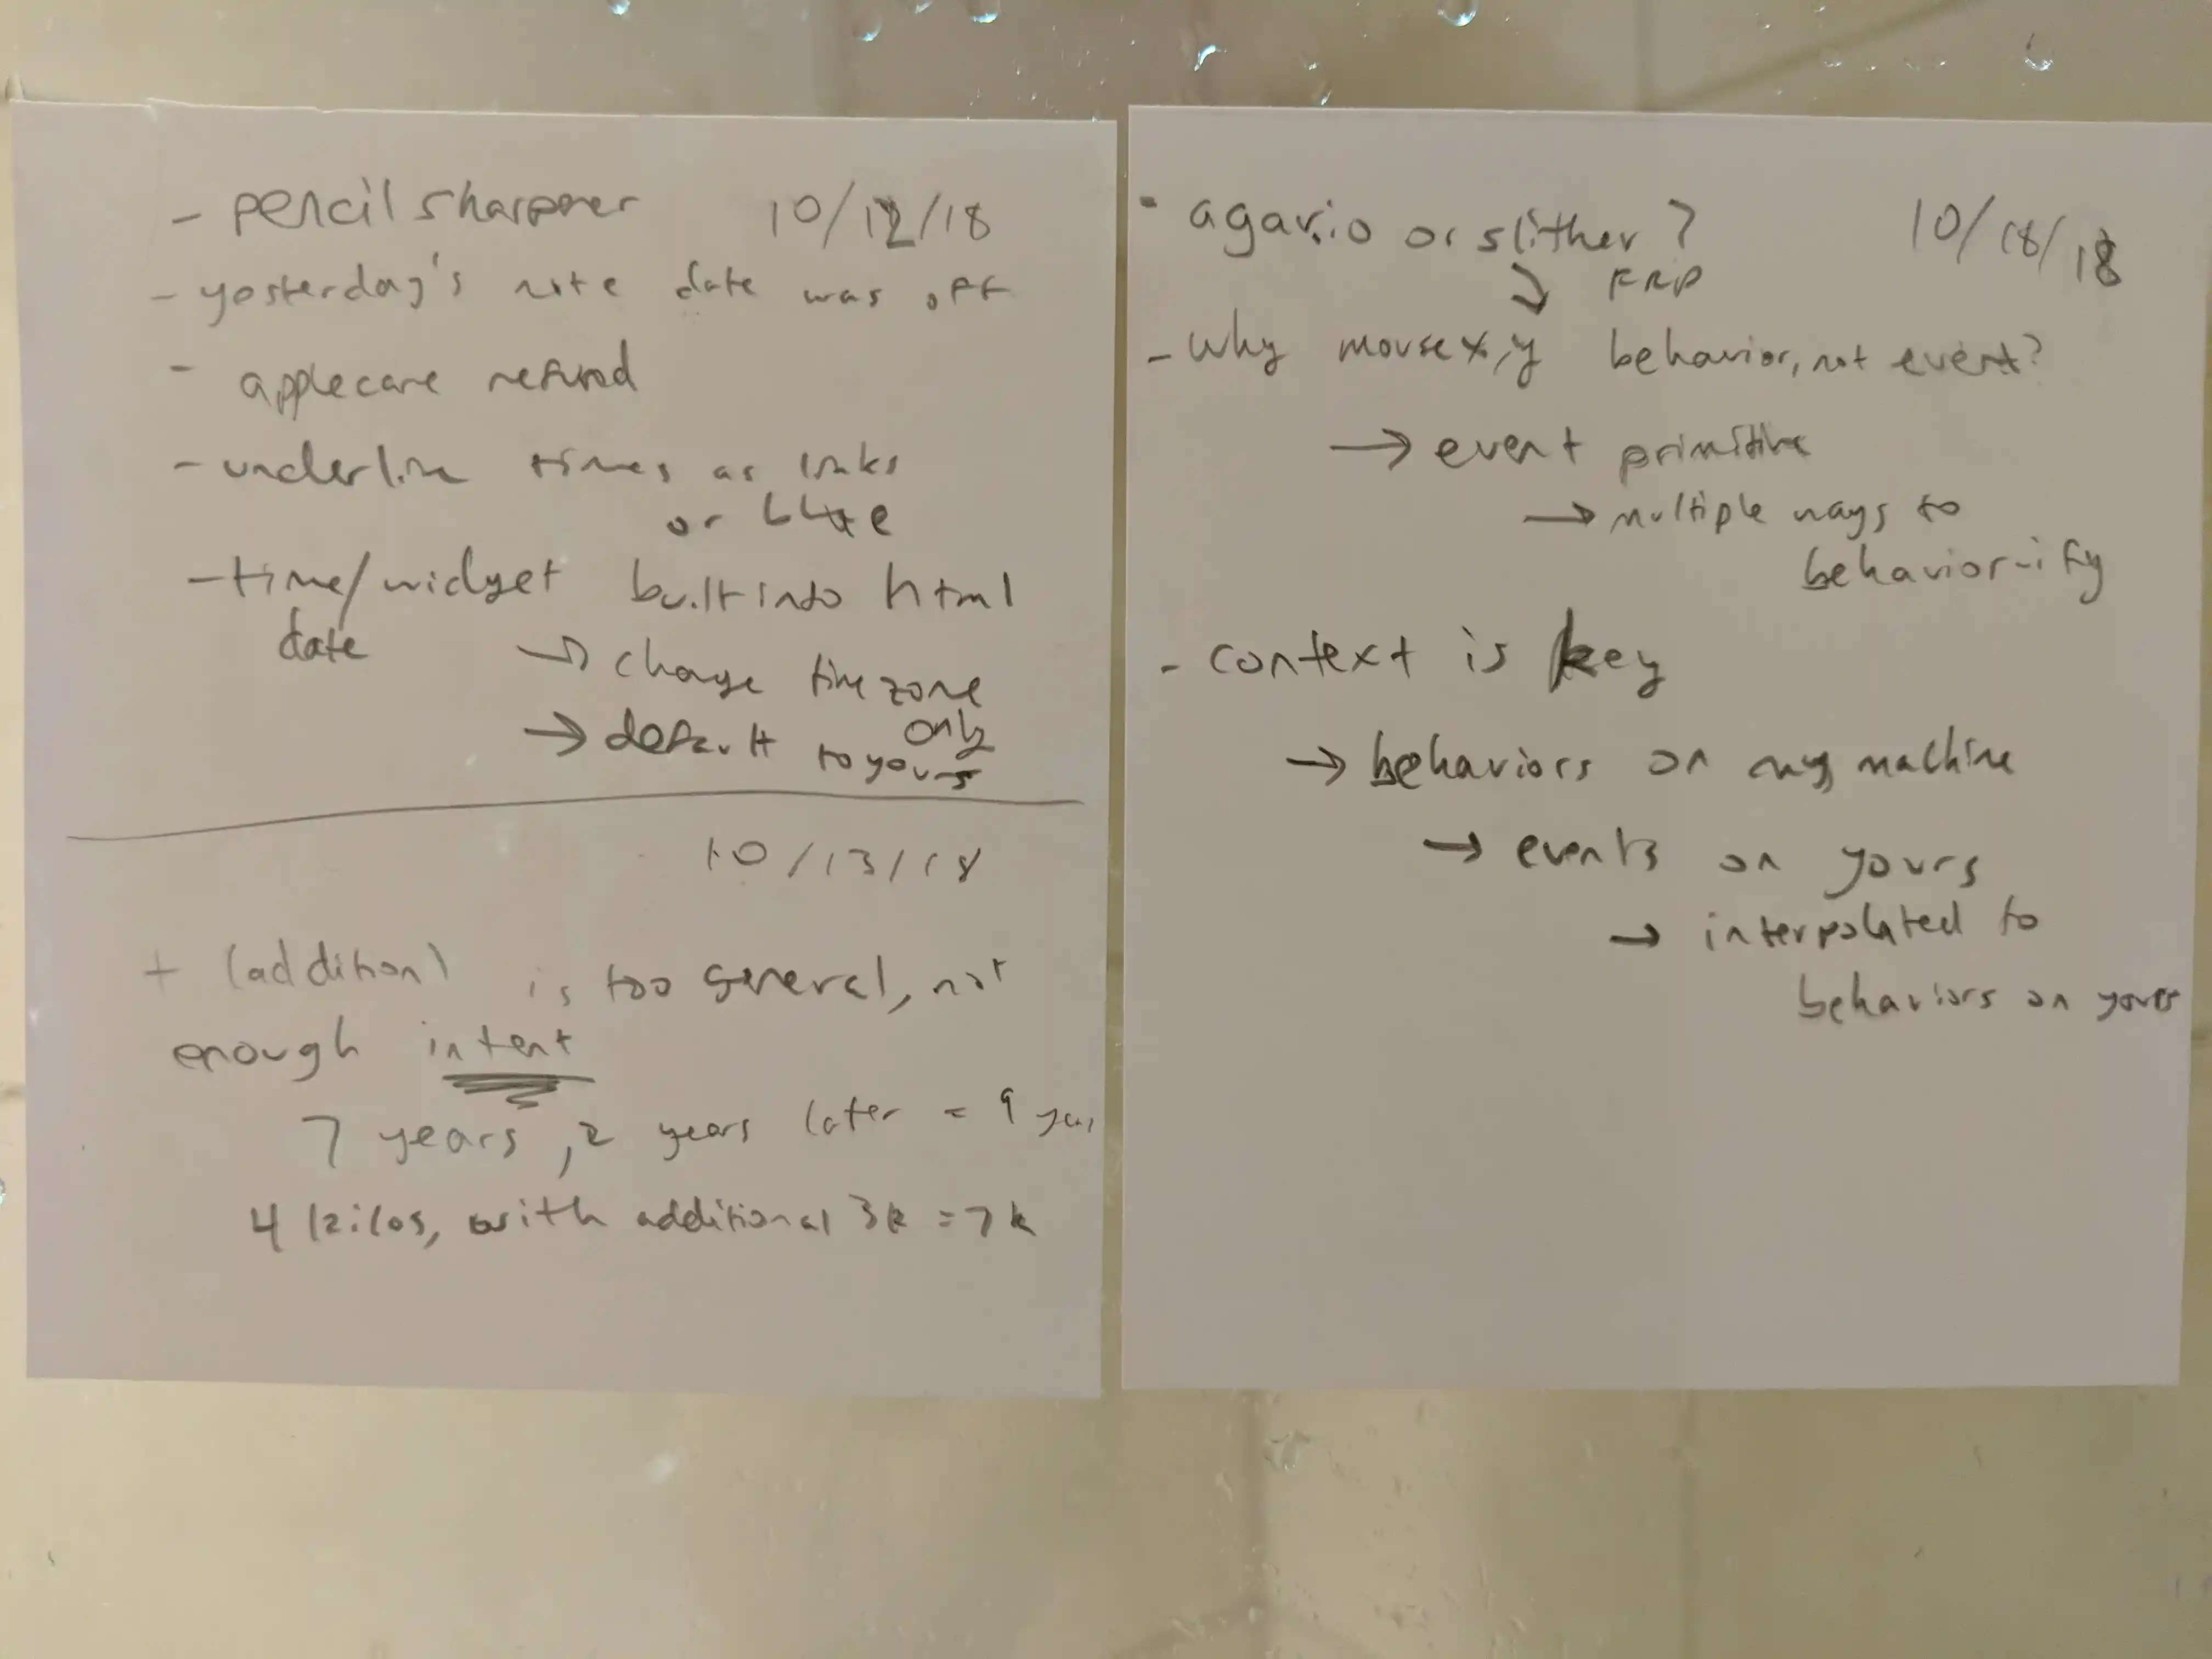 - pencil sharpener 10/12/18
- yesterday's note date was off
- applecare refund
- underline times as links
or blue
- time/widget built into html
date
→ change timezone
→ default only
to yours
10/13/18
+ (addition) is too general, not
enough intent
7 years, 2 years later = 9 years
4 kilos, with additional 3k = 7k
- agar.io or slither? 10/18/18
↘ FRP
- why mouse x,y behavior, not event?
→ event primitive
→ multiple ways to
behavior-ify
- context is key
→ behaviors on my machine
→ events on yours
→ interpolated to
behaviors on yours